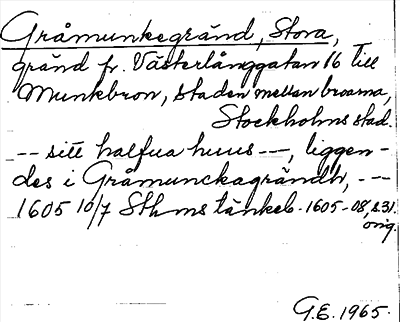 Gråmunkegränd, Stora,
gränd fr. Västerlånggatan 16 till
Munkbron, Staden mellan broarna,
Stockholms stad.
-- sitt halfua huus --, liggen-
des i Gråmunckagrändh, --
1605 10/7 Sthms tänkeb. 1605-08, s. 31.
orig.
G.E. 1965.